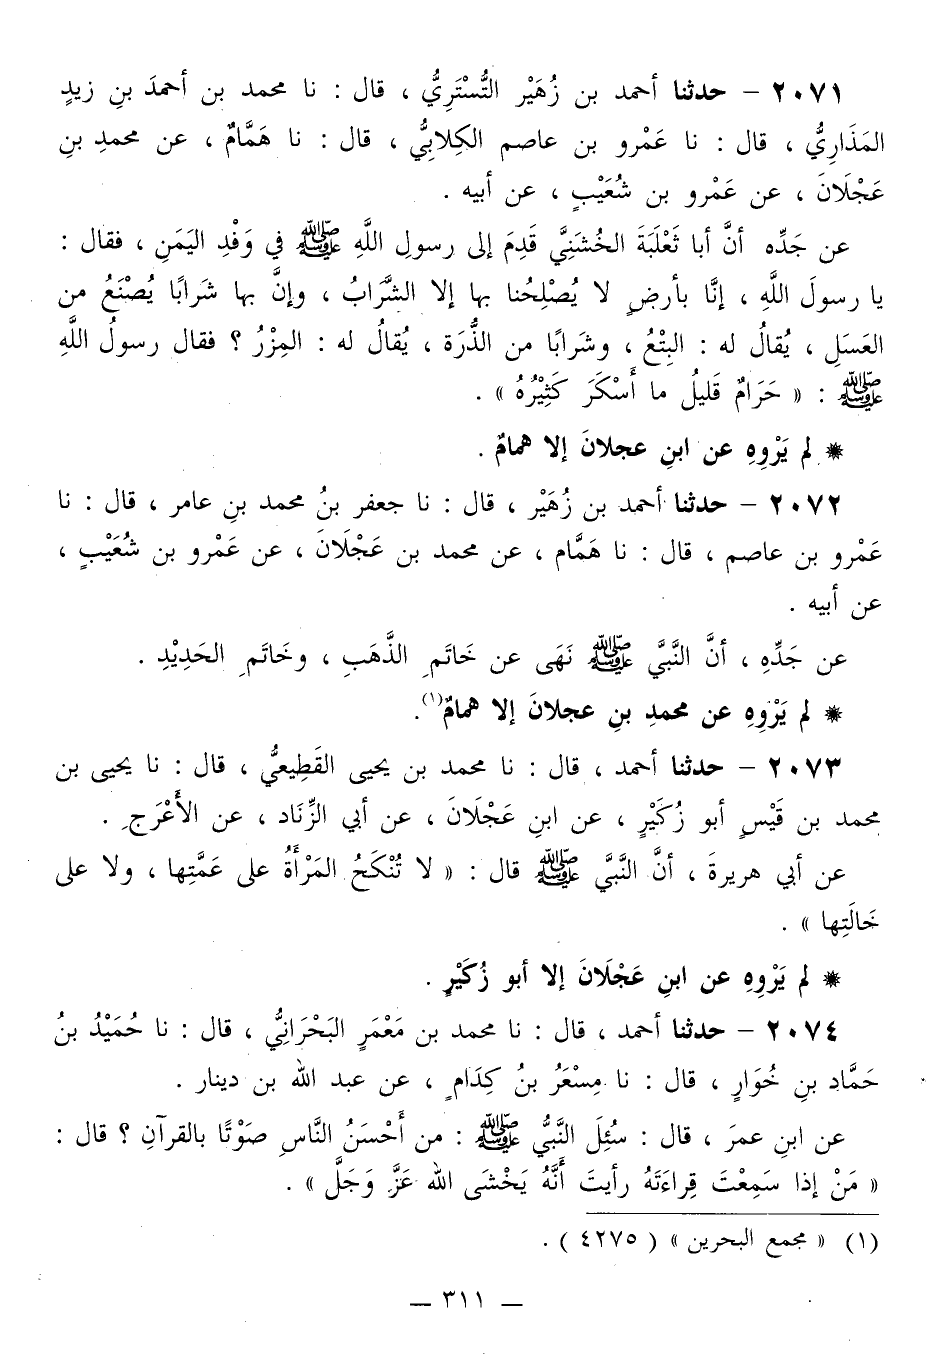 ٢٠٧١ – حدثنا أحمد بن زُهَيْر التُّسْتَرِيُّ ، قال : نا محمد بن أحمدَ بنِ زيدٍ
المَذَارِيُّ ، قال : نا عَمْرو بن عاصم الكِلابِيُّ ، قال : نا هَمَّامٌ ، عن محمدِ بنِ
عَجْلَانَ ، عن عَمْرو بن شُعَيْبٍ ، عن أبيه .
عن جَدِّه أنَّ أبا ثَعْلَبَةَ الخُشَنِيَّ قَدِمَ إلى رسولِ اللَّهِ ﷺ في وَفْدِ اليَمَنِ ، فقال :
يا رسولَ اللَّهِ ، إنَّا بأرضٍ لا يُصْلِحُنا بها إلا الشَّرَابُ ، وإنَّ بها شَرابًا يُصْنَعُ من
العَسَلِ ، يُقالُ له : البِتْعُ ، وشَرابًا من الذُّرَة ، يُقالُ له : المِزْرُ ؟ فقال رسولُ اللَّهِ
ﷺ : « حَرَامٌ قَليلُ ما أَسْكَرَ كَثِيْرُهُ » .
* لم يَرْوِهِ عن ابنِ عجلانَ إلا همامٌ .
٢٠٧٢ – حدثنا أحمد بن زُهَيْر ، قال : نا جعفر بنُ محمد بنِ عامر ، قال : نا
عَمْرو بن عاصم ، قال : نا هَمَّام ، عن محمد بن عَجْلَانَ ، عن عَمْرو بن شُعَيْبٍ ،
عن أبيه .
عن جَدِّهِ ، أنَّ النَّبيَّ ﷺ نَهَى عن خَاتَمِ الذَّهَبِ ، وخَاتَمِ الحَدِيْدِ .
* لم يَرْوِهِ عن محمدِ بنِ عجلانَ إلا همامٌ(١).
٢٠٧٣ – حدثنا أحمد ، قال : نا محمد بن يحيى القَطِيعيُّ ، قال : نا يحيى بن
محمد بن قَيْسٍ أبو زُكَيْرٍ ، عن ابنِ عَجْلَانَ ، عن أبي الزِّنَاد ، عن الأَعْرَجِ .
عن أبي هريرةَ ، أنَّ النَّبيَّ ﷺ قال : « لا تُنْكَحُ المَرْأَةُ على عَمَّتِها ، ولا على
خَالَتِها » .
* لم يَرْوِهِ عن ابنِ عَجْلَانَ إلا أبو زُكَيْرٍ .
٢٠٧٤ – حدثنا أحمد ، قال : نا محمد بن مَعْمَرٍ البَحْرَانِيُّ ، قال : نا حُمَيْدُ بنُ
حَمَّاد بنِ خُوَارٍ ، قال : نا مِسْعَرُ بنُ كِدَامٍ ، عن عبد الله بن دينار .
عن ابنِ عمرَ ، قال : سُئِلَ النَّبيُّ ﷺ : من أَحْسَنُ النَّاسِ صَوْتًا بالقرآنِ ؟ قال :
« مَنْ إذا سَمِعْتَ قِراءَتَهُ رأيتَ أَنَّهُ يَخْشَى الله عَزَّ وَجَلَّ » .
(١) « مجمع البحرين » ( ٤٢٧٥ ) .
— ٣١١ —